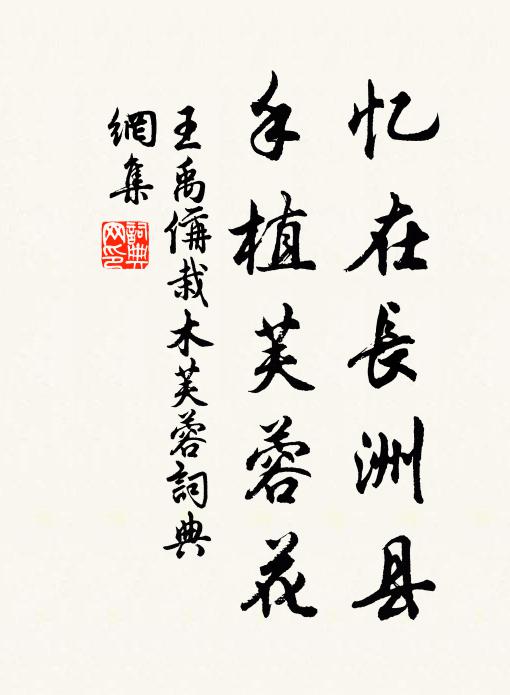 忆在長洲县
手植芙蓉花
王禹偁栽木芙蓉詞典
網集
詞典
网印